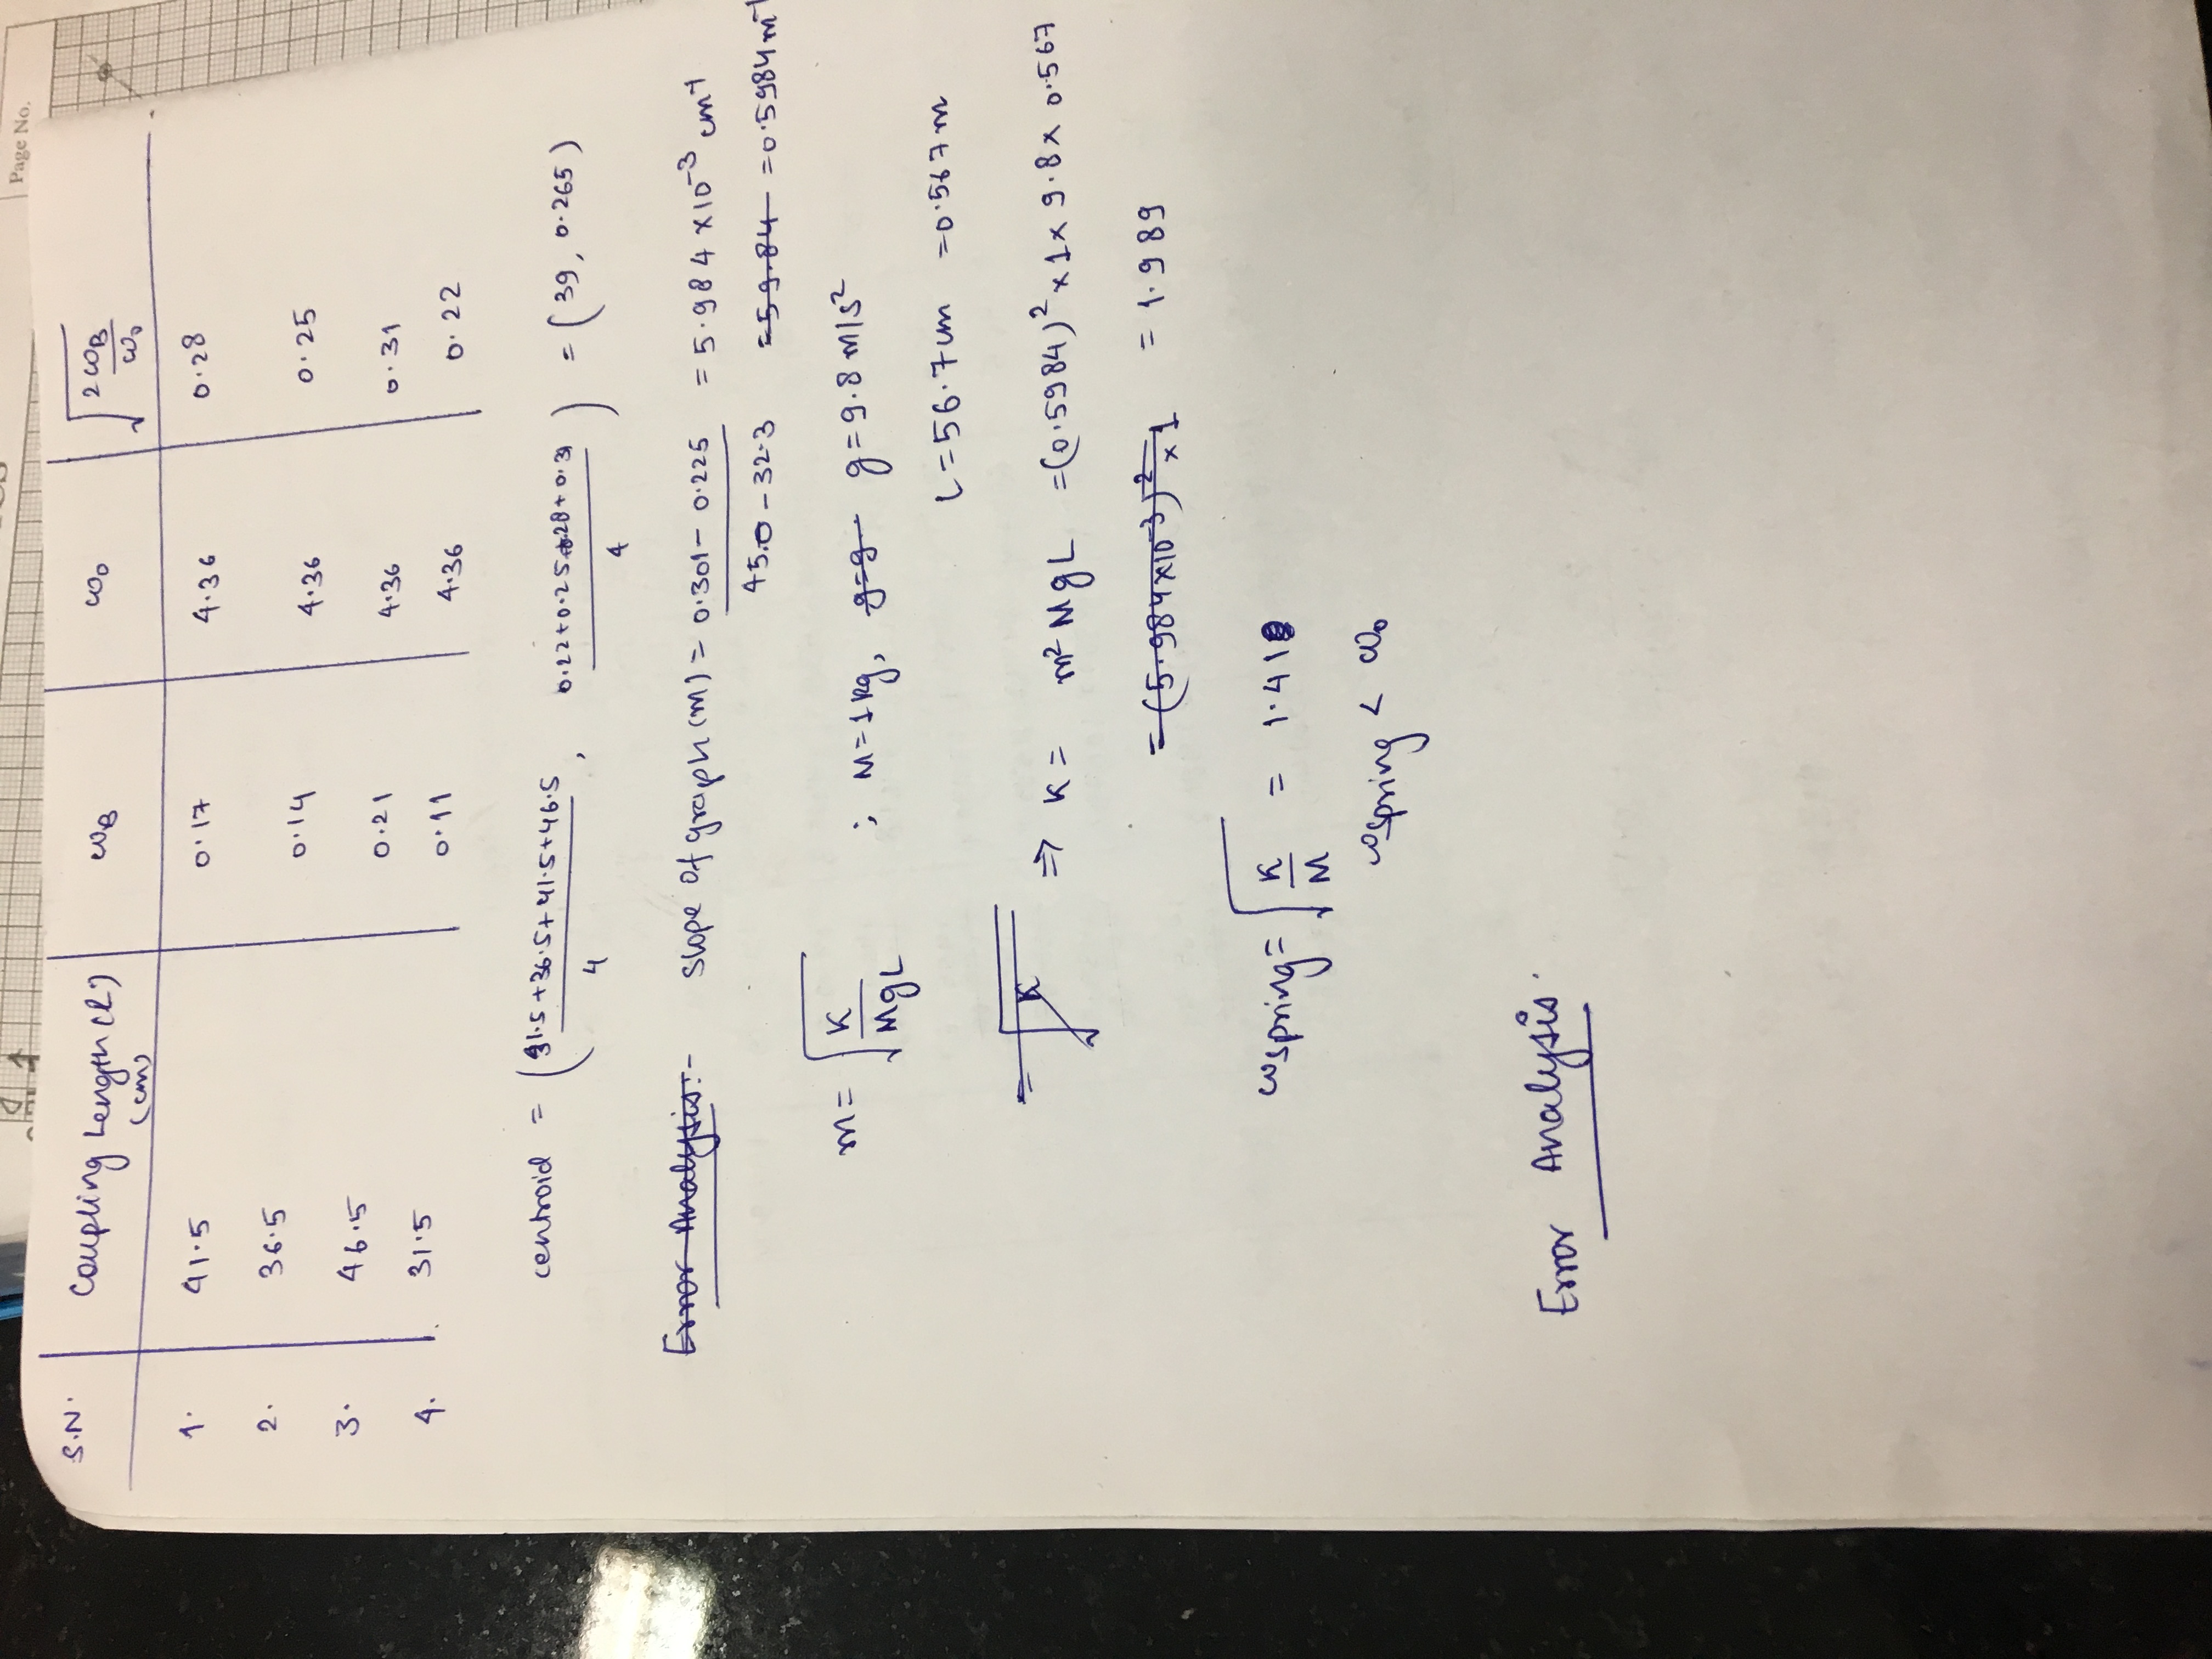 Page No.
S.N. Coupling Length (l) (cm) ωB ω0 √(2ωB/ω0)
1. 41.5 0.17 4.36 0.28
2. 36.5 0.14 4.36 0.25
3. 46.5 0.21 4.36 0.31
4. 31.5 0.11 4.36 0.22
centroid = ( (31.5+36.5+41.5+46.5)/4 , (0.22+0.25+0.28+0.31)/4 ) = (39, 0.265)
Error Analysis:- slope of graph (m) = (0.301 - 0.225)/(45.0 - 32.3) = 5.984 ×10⁻³ cm⁻¹
= 59.84 = 0.5984 m⁻¹
m = √(K/MgL) ; M = 1 kg, g = 9 g = 9.8 m/s²
L = 56.7 cm = 0.567 m
= √K ⇒ K = m² MgL = (0.5984)² × 1 × 9.8 × 0.567
= (5.984×10⁻³)² × 1 = 1.989
ωspring = √(K/M) = 1.41
ωspring < ω0
Error Analysis.